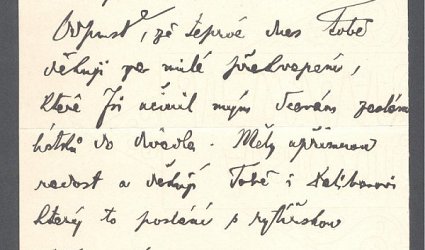 Odpusť, že teprve dnes Tobě
děkuji za milé překvapení,
které Jsi učinil mým dcerám
do divadla. Měly upřímnou
radost a děkují Tobě i
který to poslání s rytířskou